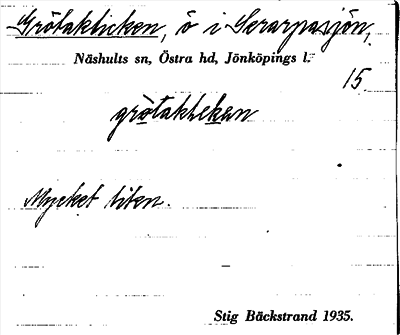 Grötaklicken, ö i Serarpasjön,
Näshults sn, Östra hd, Jönköpings l.
15.
grötaklekan
Mycket liten.
Stig Bäckstrand 1935.